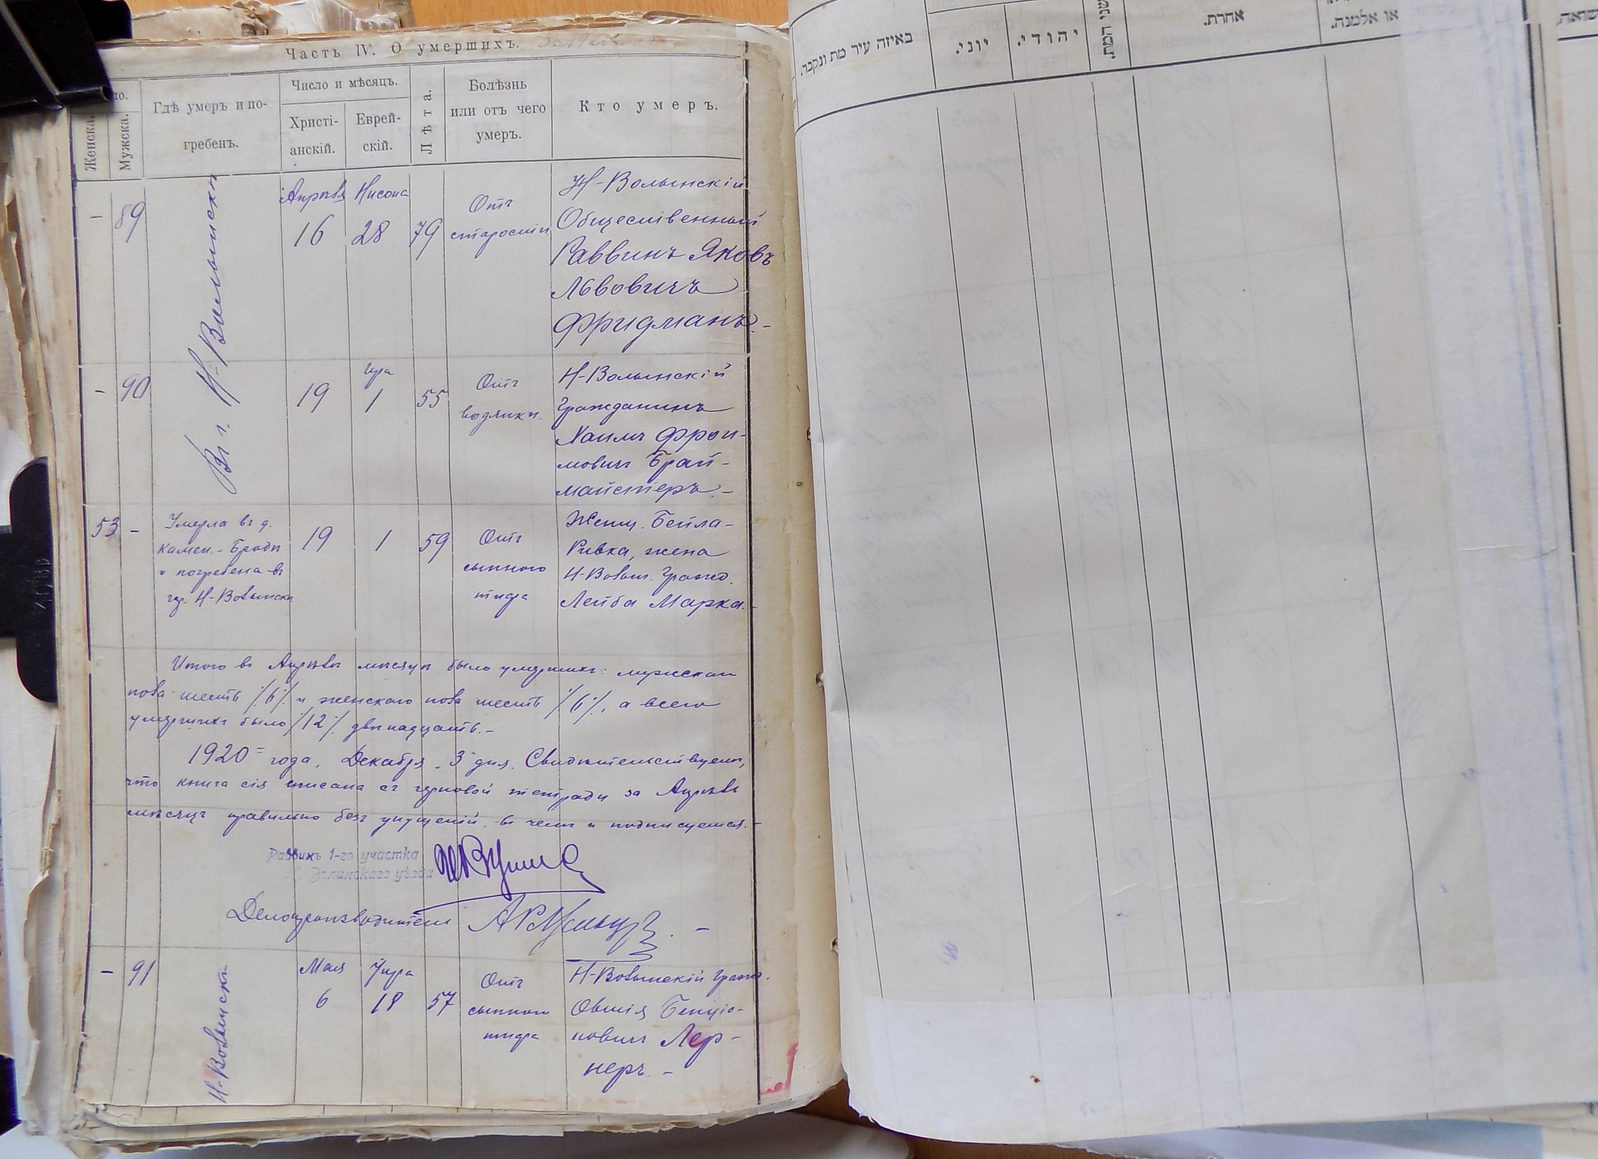 Часть IV. О умершихъ.
Женска.
Мужска.
Гдѣ умеръ и по-
гребенъ.
Число и мѣсяцъ.
Христі-
анскій.
Еврей-
скій.
Лѣта.
Болѣзнь
или отъ чего
умеръ.
Кто умеръ.
– 89
Въ г. Н-Волынскѣ
Апрѣля
16
Нисона
28
79
Отъ
старости
Н-Волынскій
Общественный
Раввинъ Яковъ
Львовичъ
Фридманъ.–
– 90
19
Іира
1
55
Отъ
водянки.
Н-Волынскій
Гражданинъ
Хаимъ Фрои-
мовичъ Брай-
майстеръ.–
53 –
Умерла въ д.
Камен.-Броды
и погребена въ
гор. Н-Волынскѣ
19
1
59
Отъ
сыпного
тифа
Женщ. Бейла-
Ривка, жена
Н-Волын. Гражд.
Лейба Марка.–
Итого въ Апрѣлѣ мѣсяцѣ было умершихъ: мужскаго
пола шесть /6/ и женскаго пола шесть /6/, а всего
умершихъ было /12/ двѣнадцать.–
1920 года, Декабря 3 дня. Свидѣтельствуемъ,
что книга сія списана съ черновой тетради за Апрѣль
мѣсяцъ правильно безъ упущеній въ чемъ и подписуемся.–
Раввинъ 1-го участка
Волинскаго уѣзда
Делопроизводитель
– 91
Н-Волынскѣ
Мая
6
Іира
18
57
Отъ
сыпного
тифа
Н-Волынскій Гражд.
Овшія Бенціо-
новичъ Лер-
неръ.–
באיזה עיר מת ונקבר.
יוני.
יהודי.
שני המת.
אחרת.
או אלמנה.